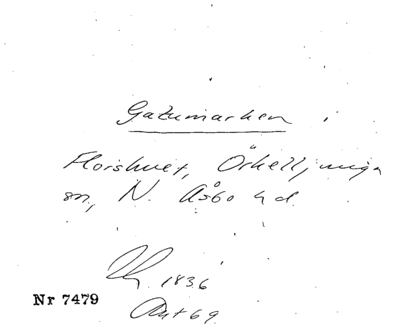 Gatumarken i
Florshult, Örkelljunga
sn, N. Åsbo hd
1836
Akt 69
Nr 7479